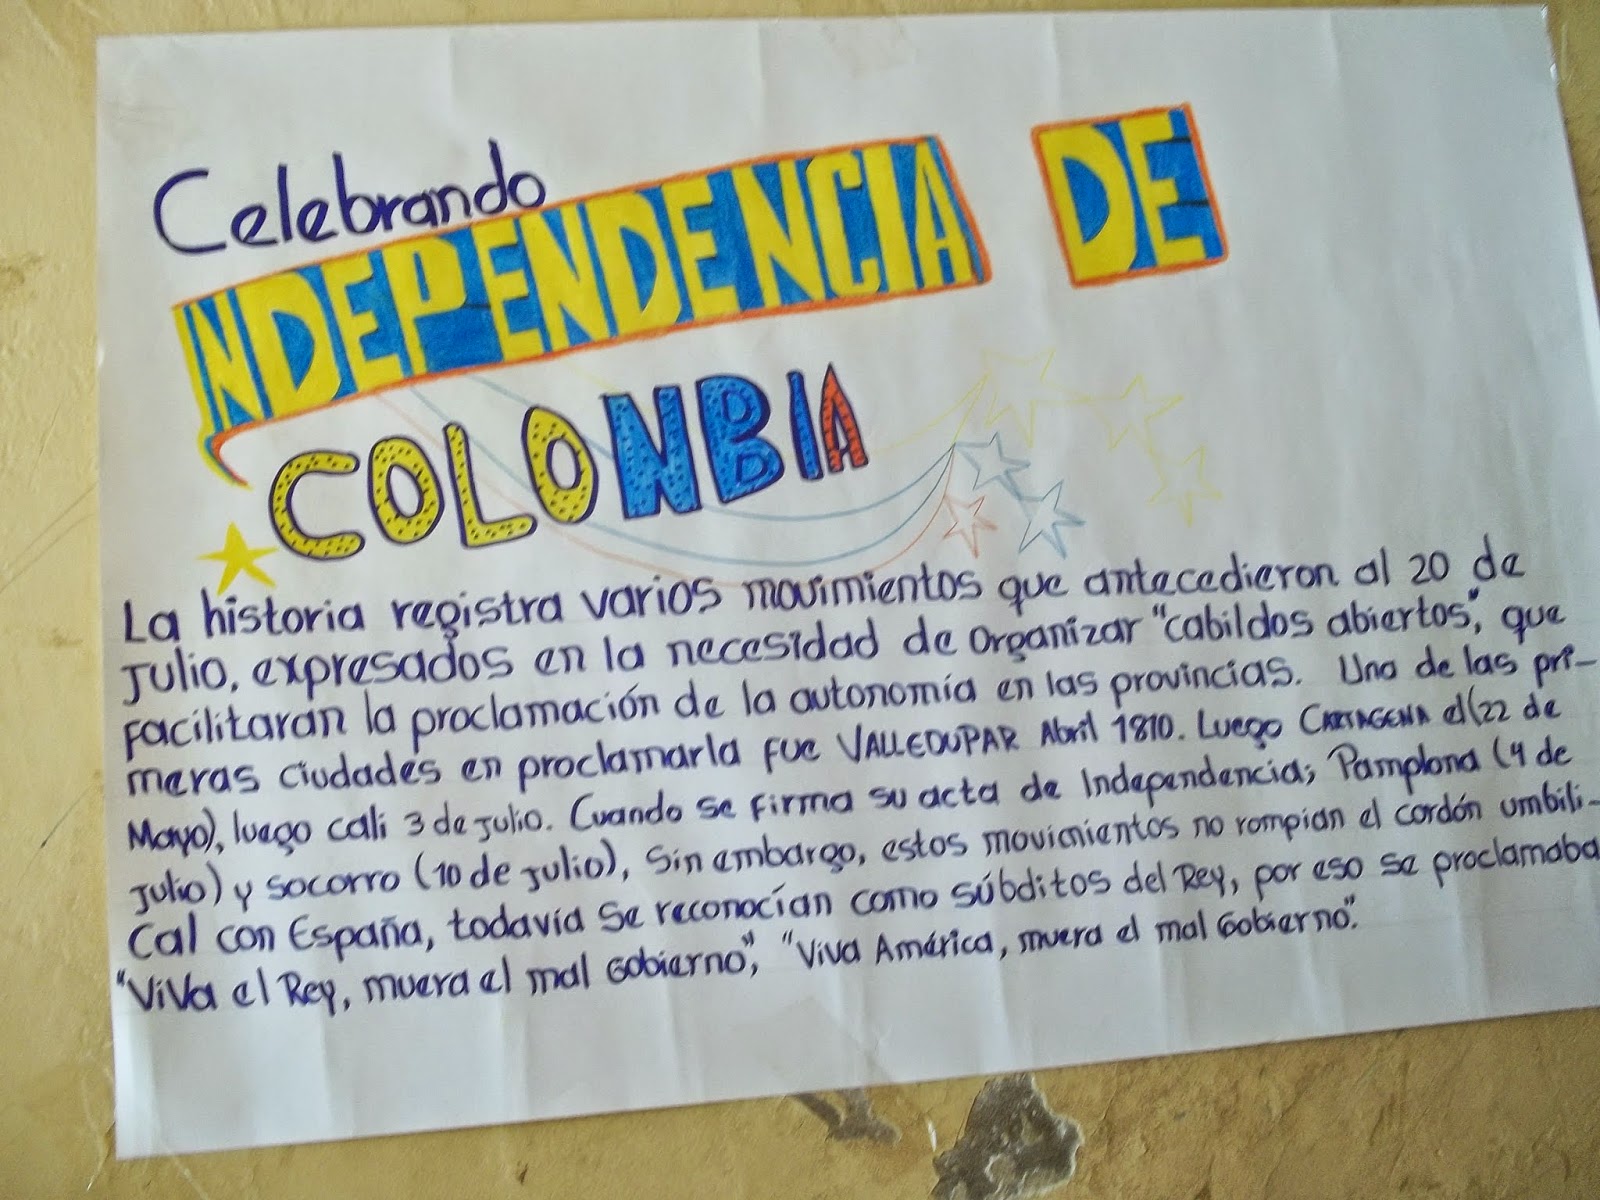 Celebrando
INDEPENDENCIA DE
COLONBIA
La historia registra varios movimientos que antecedieron al 20 de
Julio, expresados en la necesidad de organizar "cabildos abiertos", que
facilitaran la proclamación de la autonomía en las provincias. Una de las pri-
meras ciudades en proclamarla fue VALLEDUPAR Abril 1810. Luego CARTAGENA el (22 de
Mayo), luego cali 3 de julio. Cuando se firma su acta de Independencia; Pamplona (4 de
julio) y socorro (10 de julio), Sin embargo, estos movimientos no rompian el cordón umbili-
Cal con España, todavía se reconocían como súbditos del Rey, por eso se proclamaba
"ViVa el Rey, muera el mal Gobierno", "Viva América, muera el mal Gobierno".